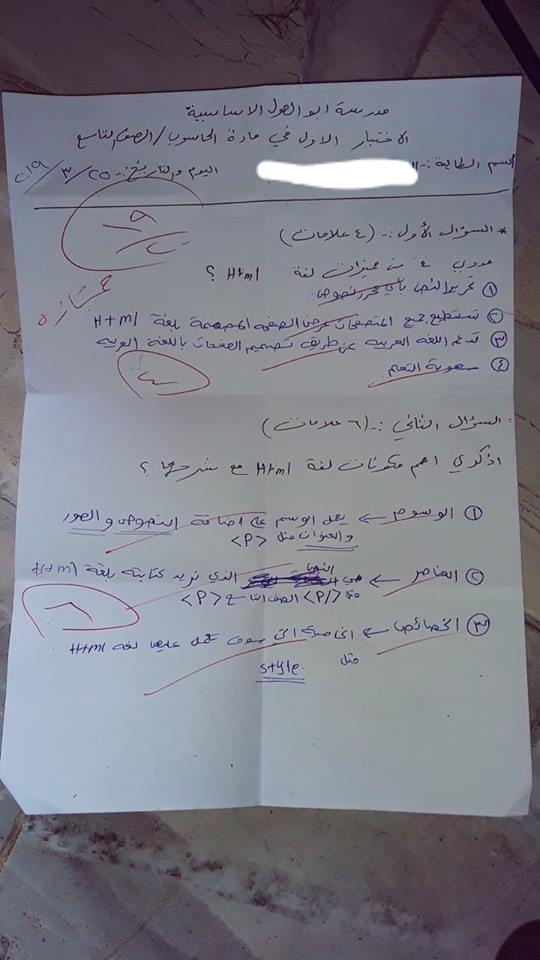 مدرسة ابو الهول الاساسية
الاختبار الاول في مادة الحاسوب / الصف التاسع
اسم الطالبة :- اليوم والتاريخ :- ٢٥ / ٣ / ٢٠١٩
* السؤال الأول :- (٤ علامات)
عددي ٤ من ميزات لغة Html ؟
① تحرير النص بأي محرر نصوص
② تستطيع جميع المتصفحات عرض الصفحة المصممة بلغة Html
③ تدعم اللغة العربية عن طريق تصميم الصفحات باللغة العربية
④ سهولة التعلم
السؤال الثاني :- (٦ علامات)
اذكري اهم مكونات لغة Html مع شرحها ؟
① الوسوم ← يعمل الوسم على اضافة النصوص والصور
والعنوان مثل <P>
② العناصر ← هي النص الذي نريد كتابته بلغة Html
مثل <P/> الصف التاسع <P>
③ الخصائص ← سوف تعمل عليها لغة Html
مثل style
ممتازه